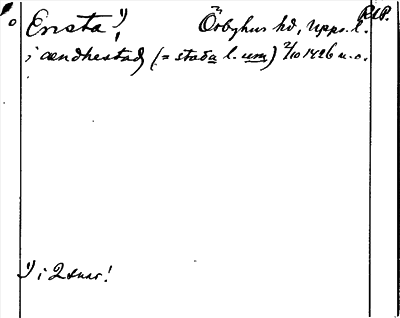 RAP.
Ensta, ¹) Örbyhus hd, Upps. l.
i ændhestad (= stada l. um) 2/10 1426 u.o.
¹) i 2 snar!